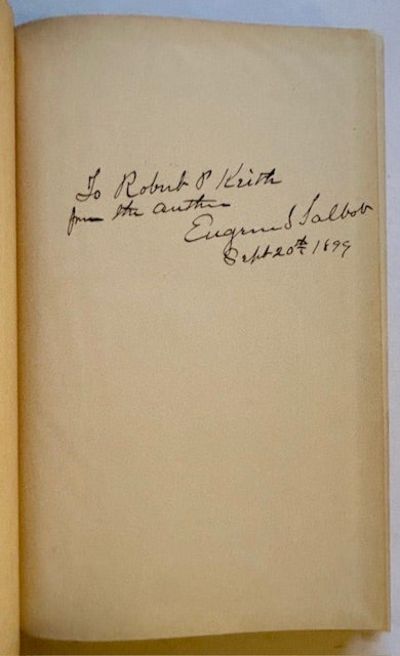 To Robert P Keith
from the author
Eugene S Talbot
Sept 20th 1899